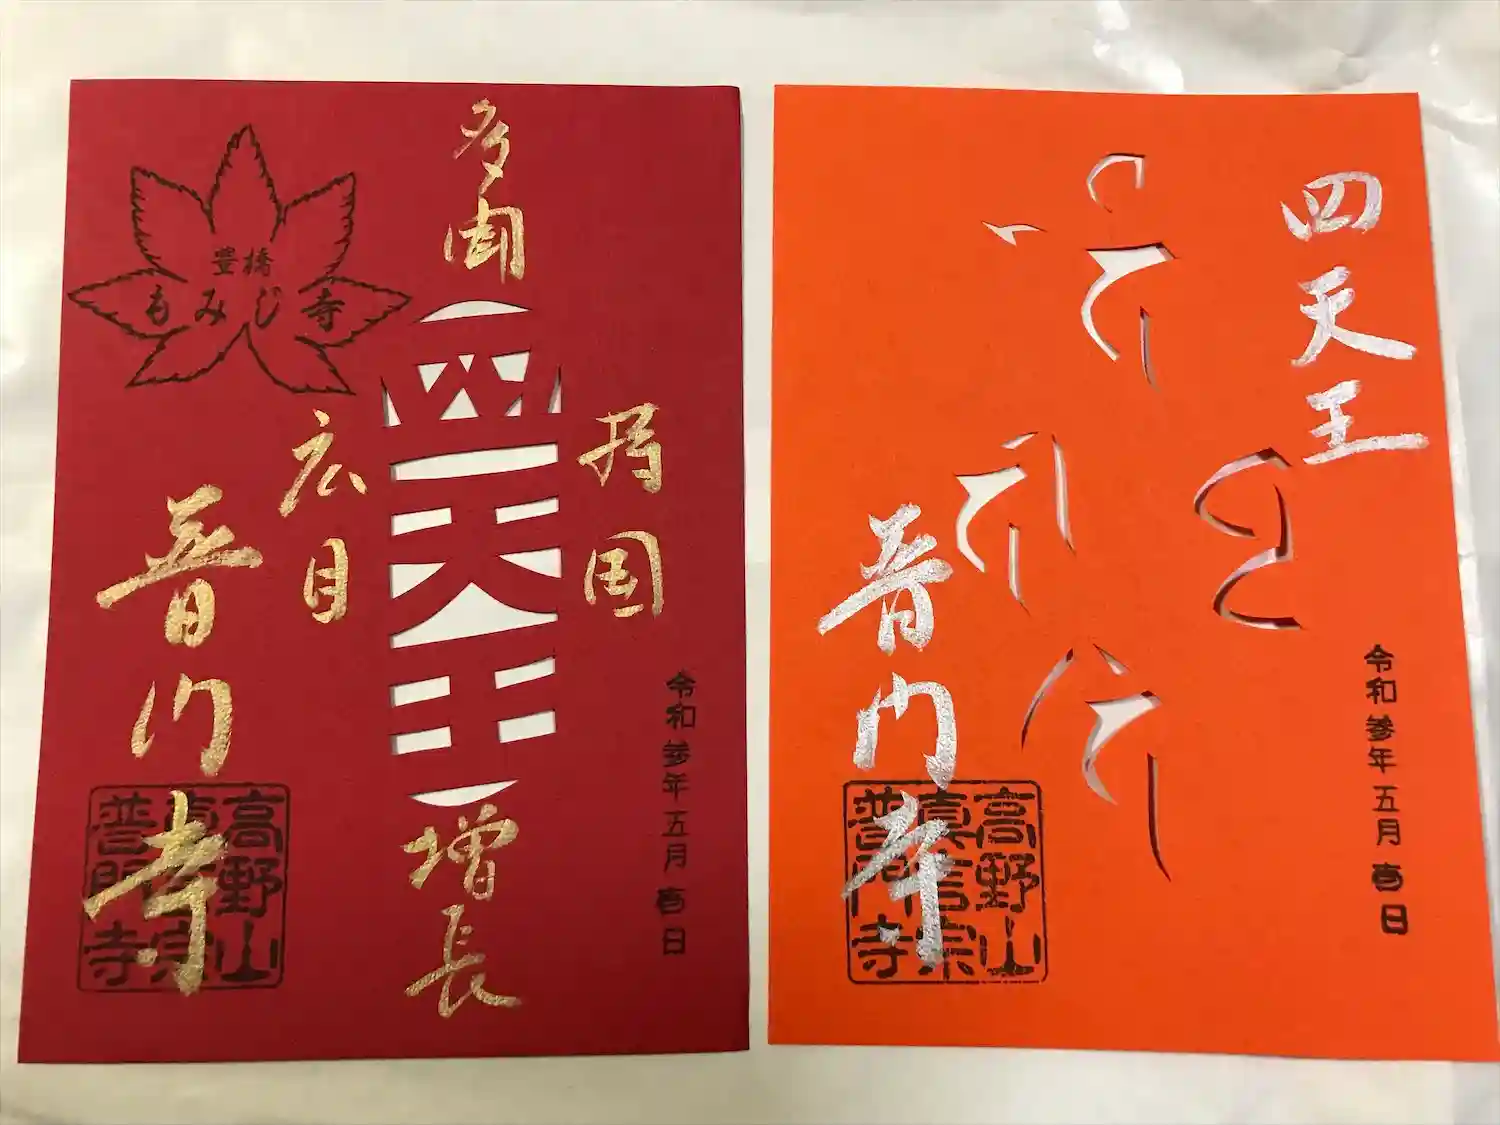 豊橋
もみじ寺
多聞
四天王
持国
広目
増長
普門寺
高野山
真言宗
普門寺
令和参年五月吉日
四天王
普門寺
高野山
真言宗
普門寺
令和参年五月吉日